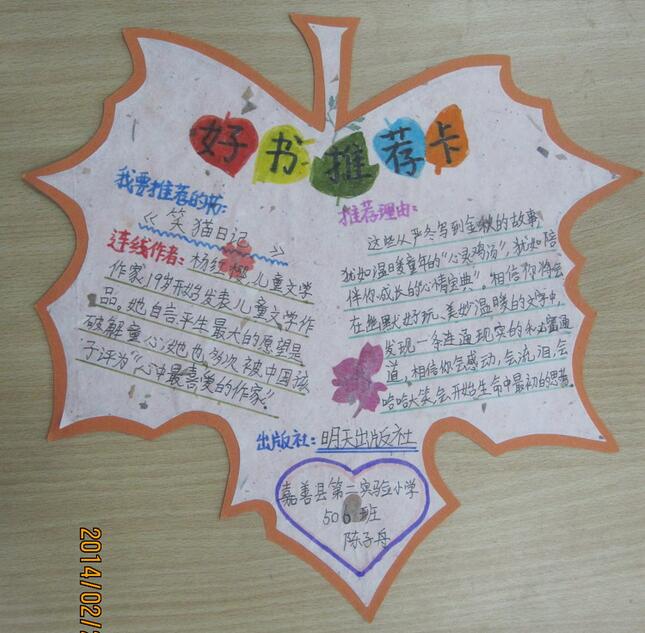 好书推荐卡
我要推荐的书:
《笑猫日记》
连线作者:杨红樱,儿童文学
作家,19岁开始发表儿童文学作
品。她自言平生最大的愿望是
破解童心,她也多次被中国孩
子评为“心中最喜爱的作家”。
推荐理由:
这些从严冬写到金秋的故事,
犹如温暖童年的“心灵鸡汤”,犹如陪
伴你成长的心情宝典”。相信你将会
在幽默好玩、美妙温暖的文字中,
发现一条连通现实的和
道,相信你会感动,会流泪,会
哈哈大笑,会开始生命中最初的思考。
出版社:明天出版社
嘉善县第二实验小学
506班
陈子丹
2014/02/